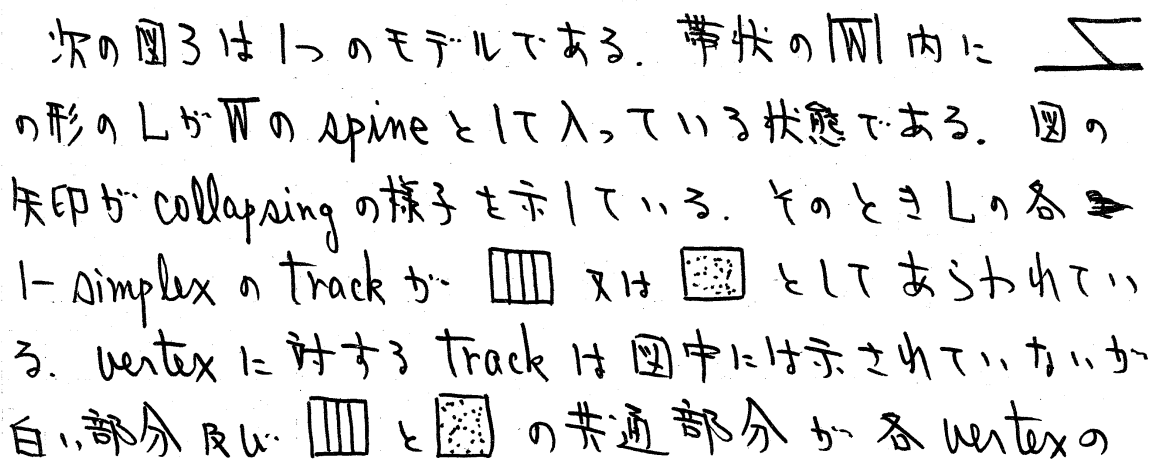 次の図3は1つのモデルである. 帯状の|W|内に
の形のLがWのspineとして入っている状態である. 図の
矢印がcollapsingの様子を示している. そのときLの各
1-simplexのtrackが 又は としてあらわれてい
る. vertexに対するtrackは図中には示されていないが
白い部分及び と の共通部分が各vertexの